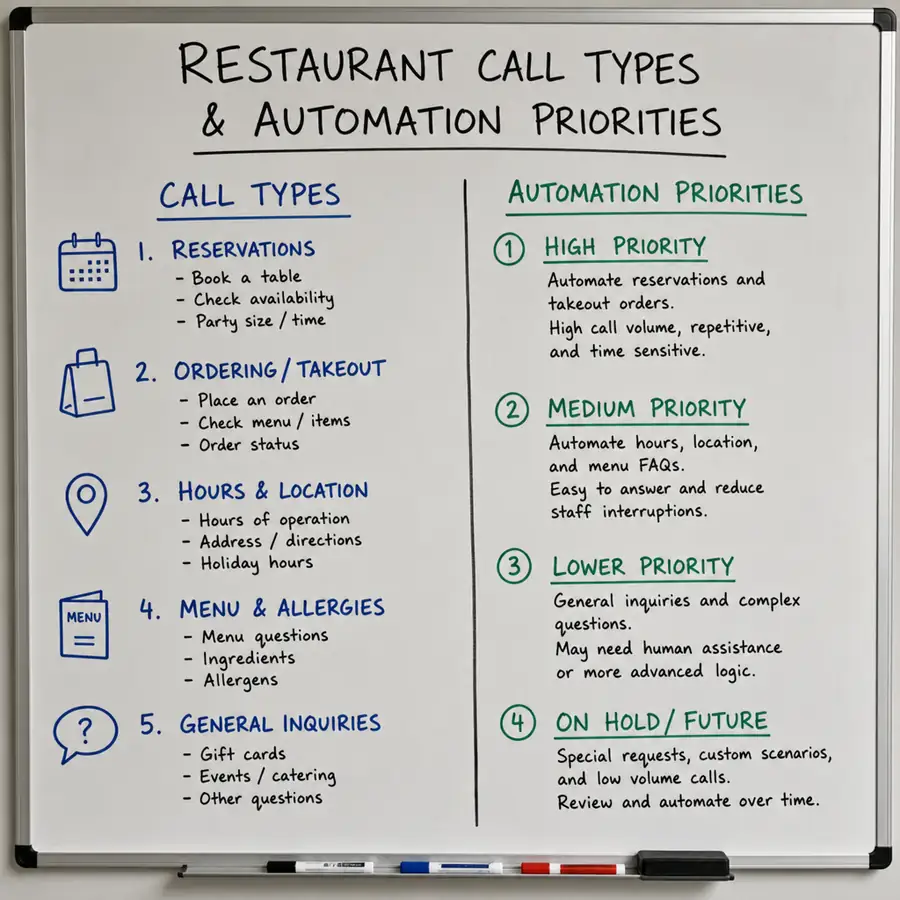 RESTAURANT CALL TYPES
& AUTOMATION PRIORITIES
CALL TYPES
1. RESERVATIONS
- Book a table
- Check availability
- Party size / time
2. ORDERING / TAKEOUT
- Place an order
- Check menu / items
- Order status
3. HOURS & LOCATION
- Hours of operation
- Address / directions
- Holiday hours
MENU
4. MENU & ALLERGIES
- Menu questions
- Ingredients
- Allergens
?
5. GENERAL INQUIRIES
- Gift cards
- Events / catering
- Other questions
AUTOMATION PRIORITIES
1 HIGH PRIORITY
Automate reservations and
takeout orders.
High call volume, repetitive,
and time sensitive.
2 MEDIUM PRIORITY
Automate hours, location,
and menu FAQs.
Easy to answer and reduce
staff interruptions.
3 LOWER PRIORITY
General inquiries and complex
questions.
May need human assistance
or more advanced logic.
4 ON HOLD / FUTURE
Special requests, custom scenarios,
and low volume calls.
Review and automate over time.